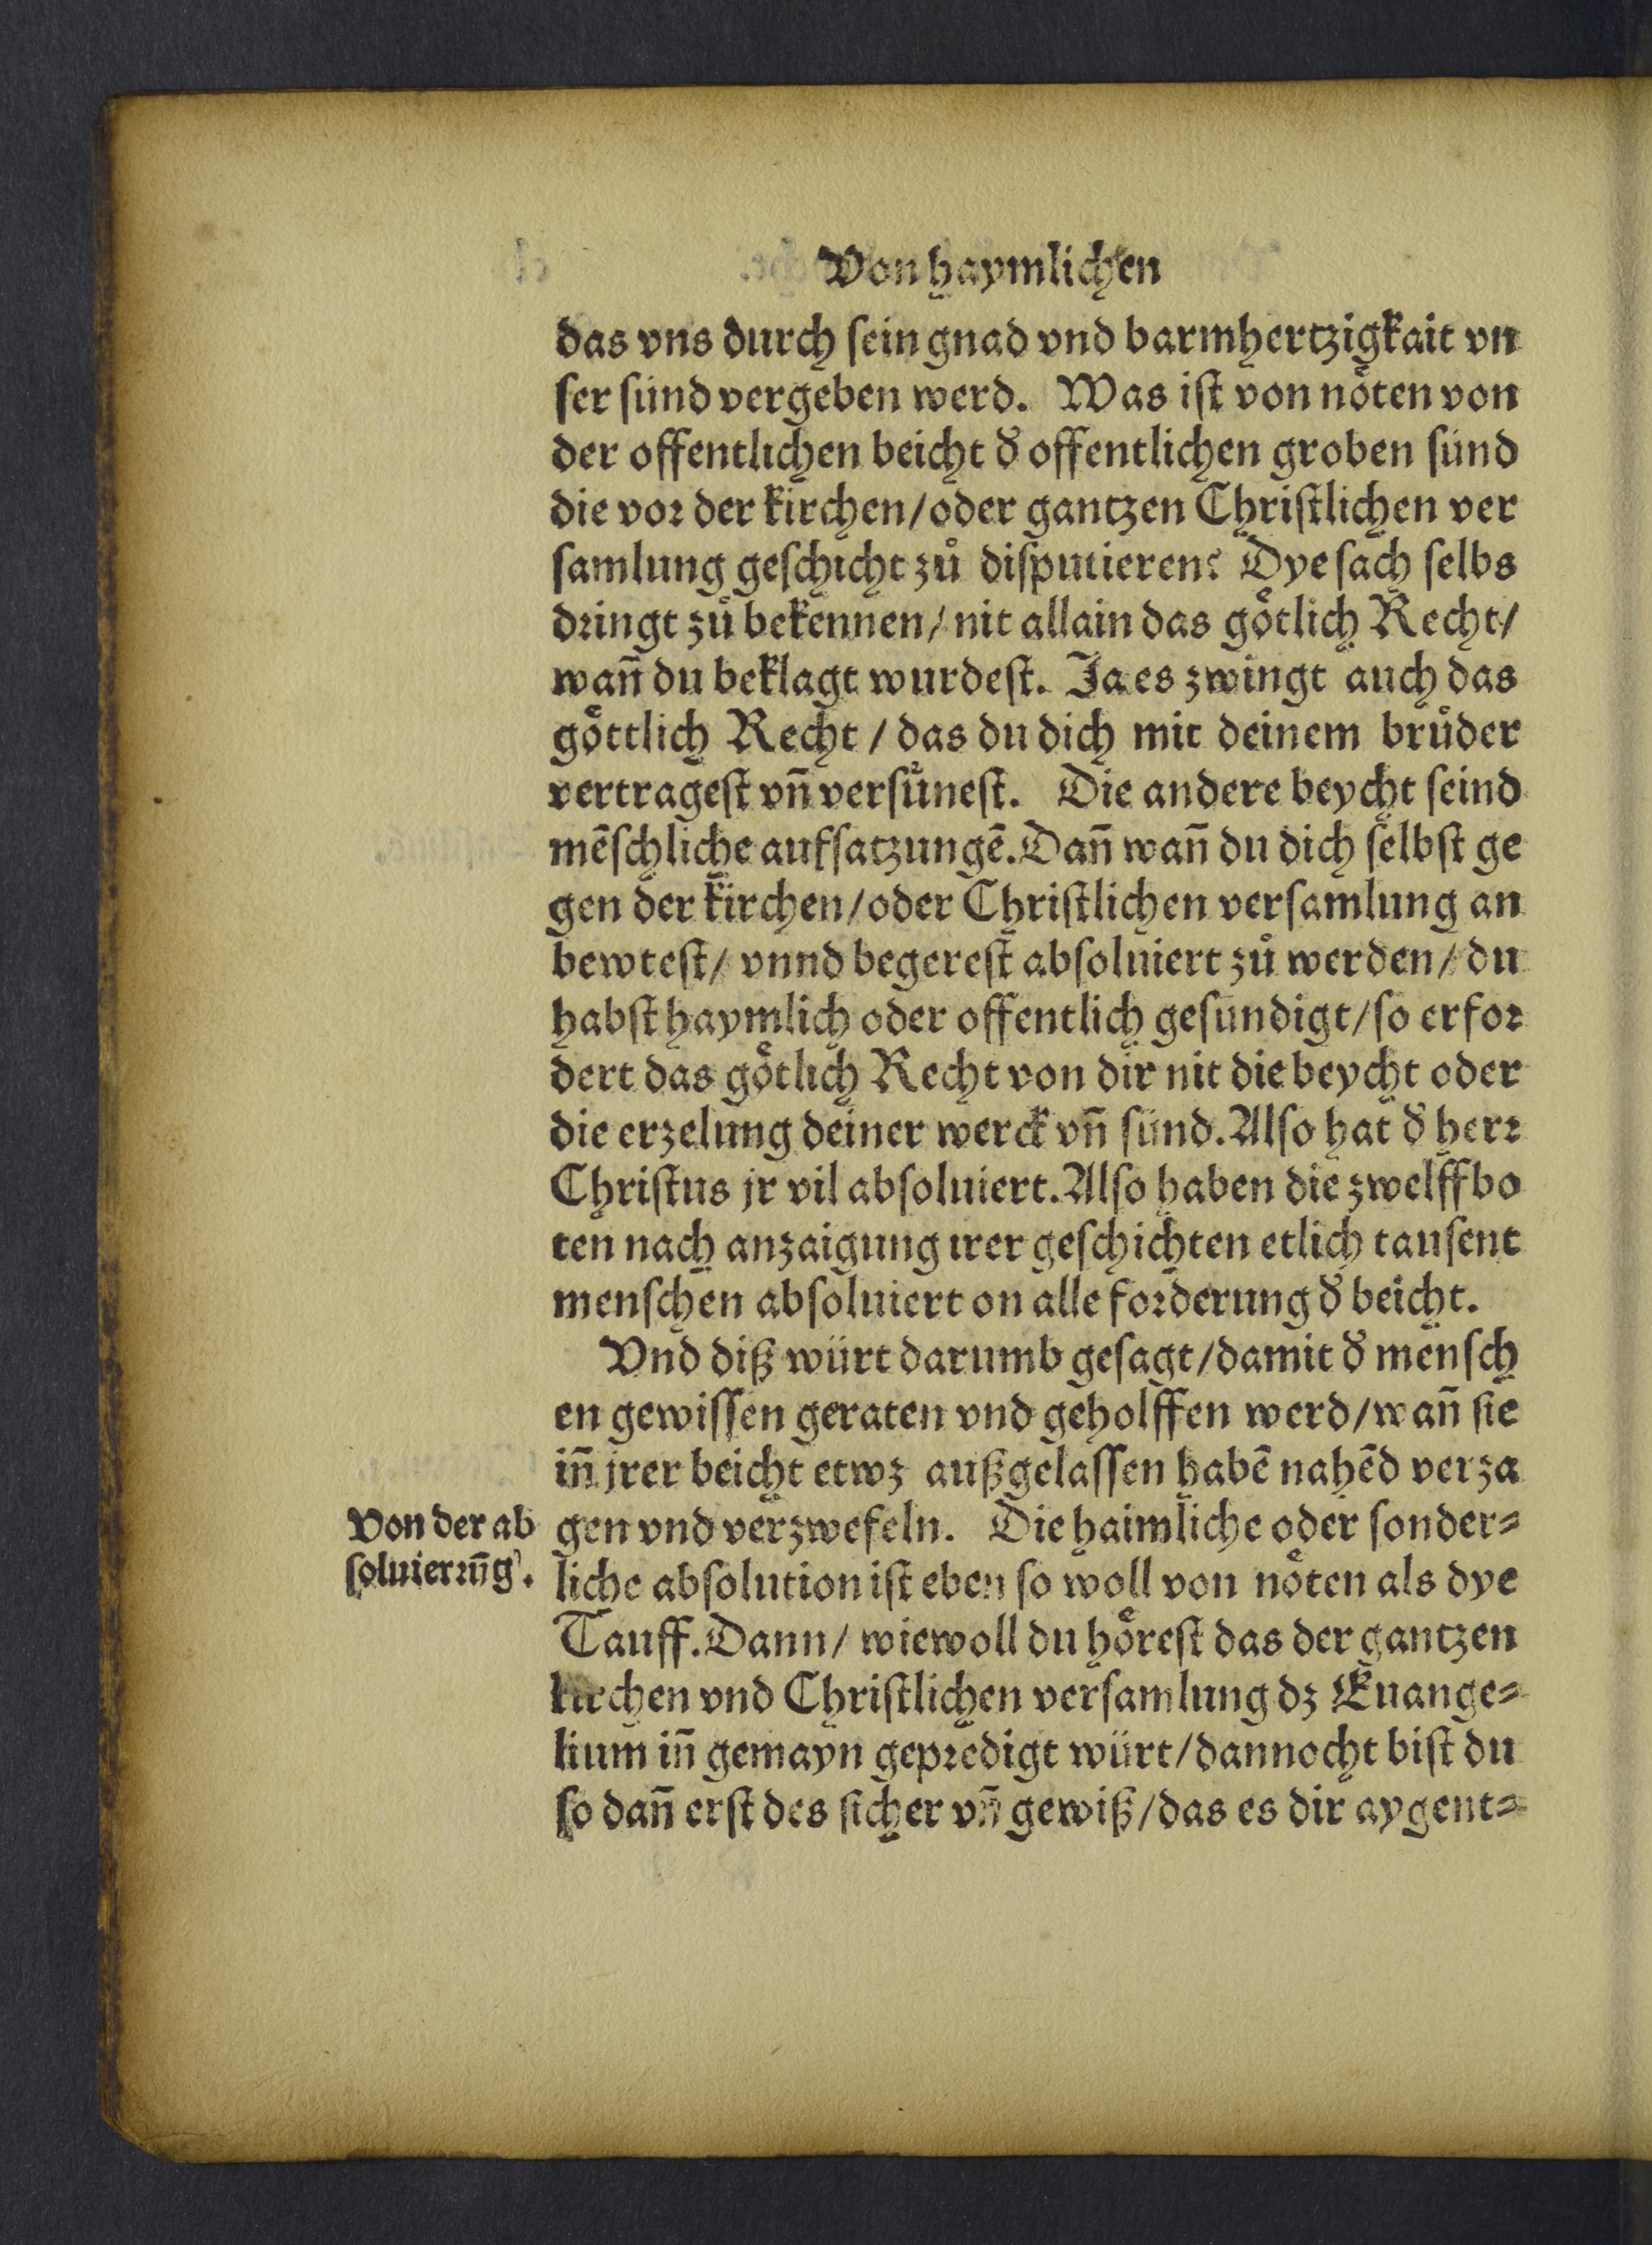 Von haymlichen
das vns durch ſein gnad vnd barmhertzigkait vn
ſer ſünd vergeben werd. Was iſt von nöten von
der offentlichen beicht đ offentlichen groben ſünd
die vor der kirchen/oder gantzen Chriſtlichen ver
ſamlung geſchicht zů diſputieren? Dye ſach ſelbs
dringt zů bekennen/ nit allain das götlich Recht/
wañ du beklagt wurdeſt. Ja es zwingt auch das
göttlich Recht / das du dich mit deinem brůder
vertrageſt vñ verſüneſt. Die andere beycht ſeind
mẽſchliche aufſatzungẽ. Dañ wañ du dich ſelbſt ge
gen der kirchen/oder Chriſtlichen verſamlung an
bewteſt/ vnnd begereſt abſoluiert zů werden/ du
habſt haymlich oder offentlich geſündigt/ſo erfor
dert das götlich Recht von dir nit die beycht oder
die erzelung deiner werck vñ ſünd. Alſo hat đ herr
Chriſtus jr vil abſoluiert. Alſo haben die zwelffbo
ten nach anzaigung irer geſchichten etlich tauſent
menſchen abſoluiert on alle forderung đ beicht.
Vnd diß würt darumb geſagt/damit đ menſch
en gewiſſen geraten vnd geholffen werd/wañ ſie
iñ jrer beicht etwz außgelaſſen habẽ nahẽd verza
Von der ab
ſoluierũg.
gen vnd verzwefeln. Die haimliche oder ſonder⸗
liche abſolution iſt eben ſo woll von nöten als dye
Tauff. Dann/ wiewoll du höreſt das der gantzen
kirchen vnd Chriſtlichen verſamlung dz Euange⸗
lium iñ gemayn gepredigt würt/dannocht biſt du
ſo dañ erſt des ſicher vñ gewiß/das es dir aygent⸗